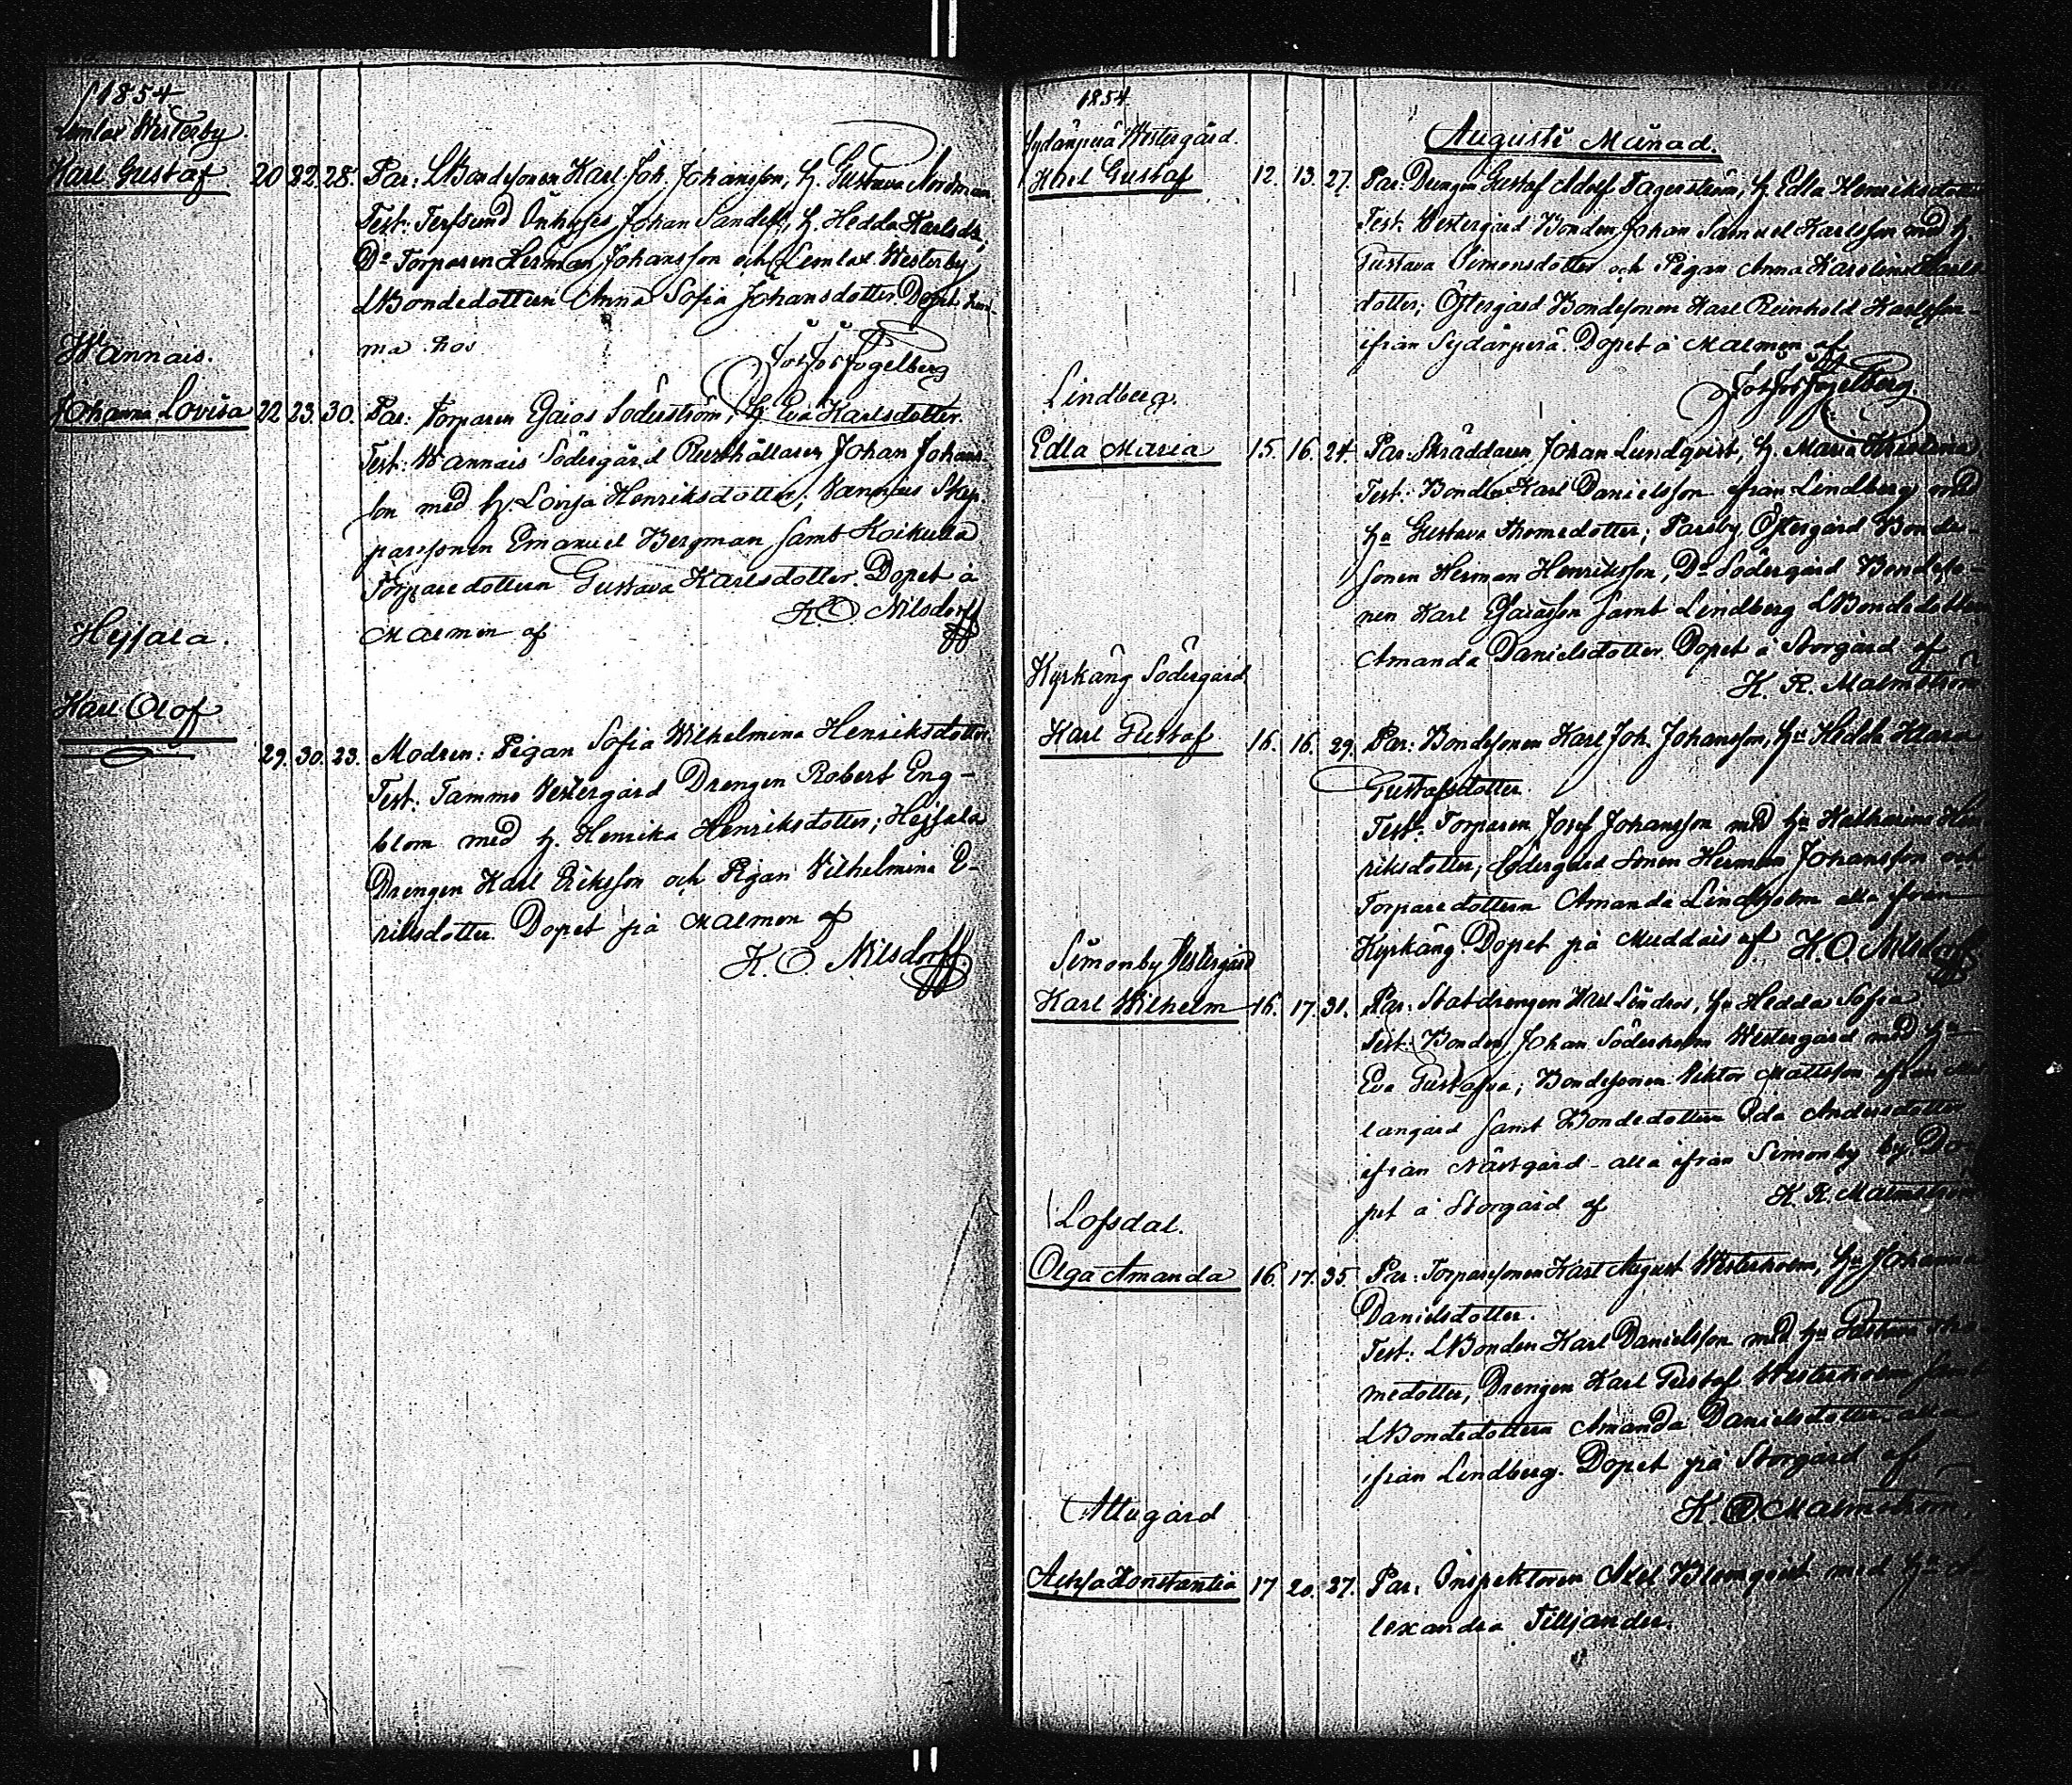 1854
Lemlax Westerby
Karl Gustaf 20 22. 28. Par: LBondsonen Karl Joh. Johansson, h. Gustava Nordman
Test: Terssund Inhyses Johan Sandell, h. Hedda Karlsdr,
Do Torparen Herman Johansson och Lemlax Westerby
LBondedottern Anna Sofia Johansdotter. Döpt hem-
ma hos
Fogelberg
Wannais.
Johanna Lovisa 22 23. 30. Par: Torparen Gajos Söderström, h. Eva Karlsdotter.
Test: Wannais Södergård Rusthållaren Johan Johans-
son med h. Lovisa Henriksdotter; Wannais Skep-
paresonen Emanuel Bergman samt Koikulla
Torparedottern Gustava Karlsdotter. Döpet å
Malmen af K O Nilsdorff
Hejsala.
Karl Olof
29. 30. 23. Modren: Pigan Sofia Wilhelmina Henriksdotter
Test: Tammo Westergård Drengen Robert Eng-
blom med h. Henrika Henriksdotter; Hejsala
Drengen Karl Eriksson och Pigan Vilhelmina E-
riksdotter. Döpet på Malmen af
K. O. Nilsdorff
1854
Sydänperä Westergård.
Augusti Månad.
Karl Gustaf 12. 13. 27. Par: Drengen Gustaf Adolf Fagerström, h. Edla Henriksdotter
Test: Westergård Bonden Johan Samuel Karlsson med h.
Gustava Simonsdotter och Pigan Anna Karolina Karls-
dotter; Östergård Bondesonen Karl Reinhold Karlsson
ifrån Sydänperä. Döpet å Malmen af
Fogelberg
Lindberg.
Edla Maria 15. 16. 24. Par: Skräddaren Johan Lundqvist, h. Maria Kristina
Test: Bonden Karl Danielsson ifrån Lindberg med
hu Gustava Thomedotter; Parsby Östergård Bonde-
sonen Herman Henriksson, Do Södergård Bondeso-
nen Karl samt Lindberg LBondedottern
Amanda Danielsdotter. Döpet å Storgård af
K. R. Malmström
Kyrkäng Södergård
Karl Gustaf 16. 16. 29. Par: Bondesonen Karl Joh. Johansson, hu Hedda Klara
Gustafsdotter.
Test: Torparen Josef Johansson med hu Katharina Hen
riksdotter, Södergård Sonen Herman Johansson och
Torparedottern Amanda Lindholm alla ifrån
Kyrkäng. Döpet på Muddais af K. O Nilsdorff
Simonby Westergård
Karl Wilhelm 16. 17. 31. Par: Statdrengen Karl Lindros, hu Hedda Sofia
Test: Bonden Johan Söderholm Westergård med hu
Eva Gustafva; Bondesonen Viktor Mattsson ifrån Mel
langård samt Bondedottern Ida Andersdotter
ifrån Nästgård - alla ifrån Simonby by. Dö
pet å Storgård af K. R. Malmström
Lofsdal.
Olga Amanda 16. 17. 35. Par: Torparesonen Karl August Westerholm, hu Johanna
Danielsdotter.
Test: LBonden Karl Danielsson med hu Gustava Tho
medotter, Drengen Karl Gustaf Westerholm samt
LBondedottern Amanda Danielsdotter alla
ifrån Lindberg. Döpet på Storgård af
K. R. Malmström.
Attugård
Konstantia 17 20. 27. Par: Inspektoren Axel Blomqvist med hu A-
lexandra Tilljander.